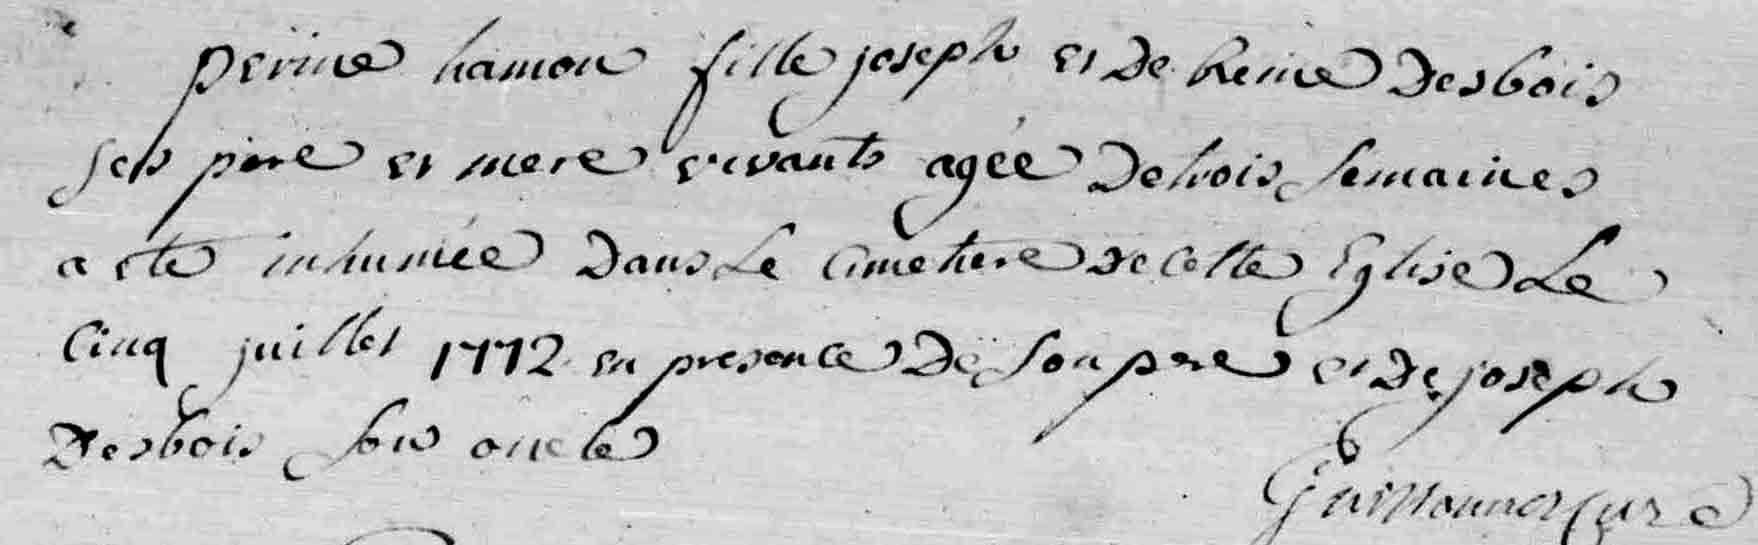 perine hamon fille joseph et De Reine Desbois
ses père et mere vivants agée De trois semaines
a ete inhumée Dans Le Cimetiere De Cette Eglise Le
Cinq juillet 1772 en presence De son pere et De joseph
Desbois son oncle
curé